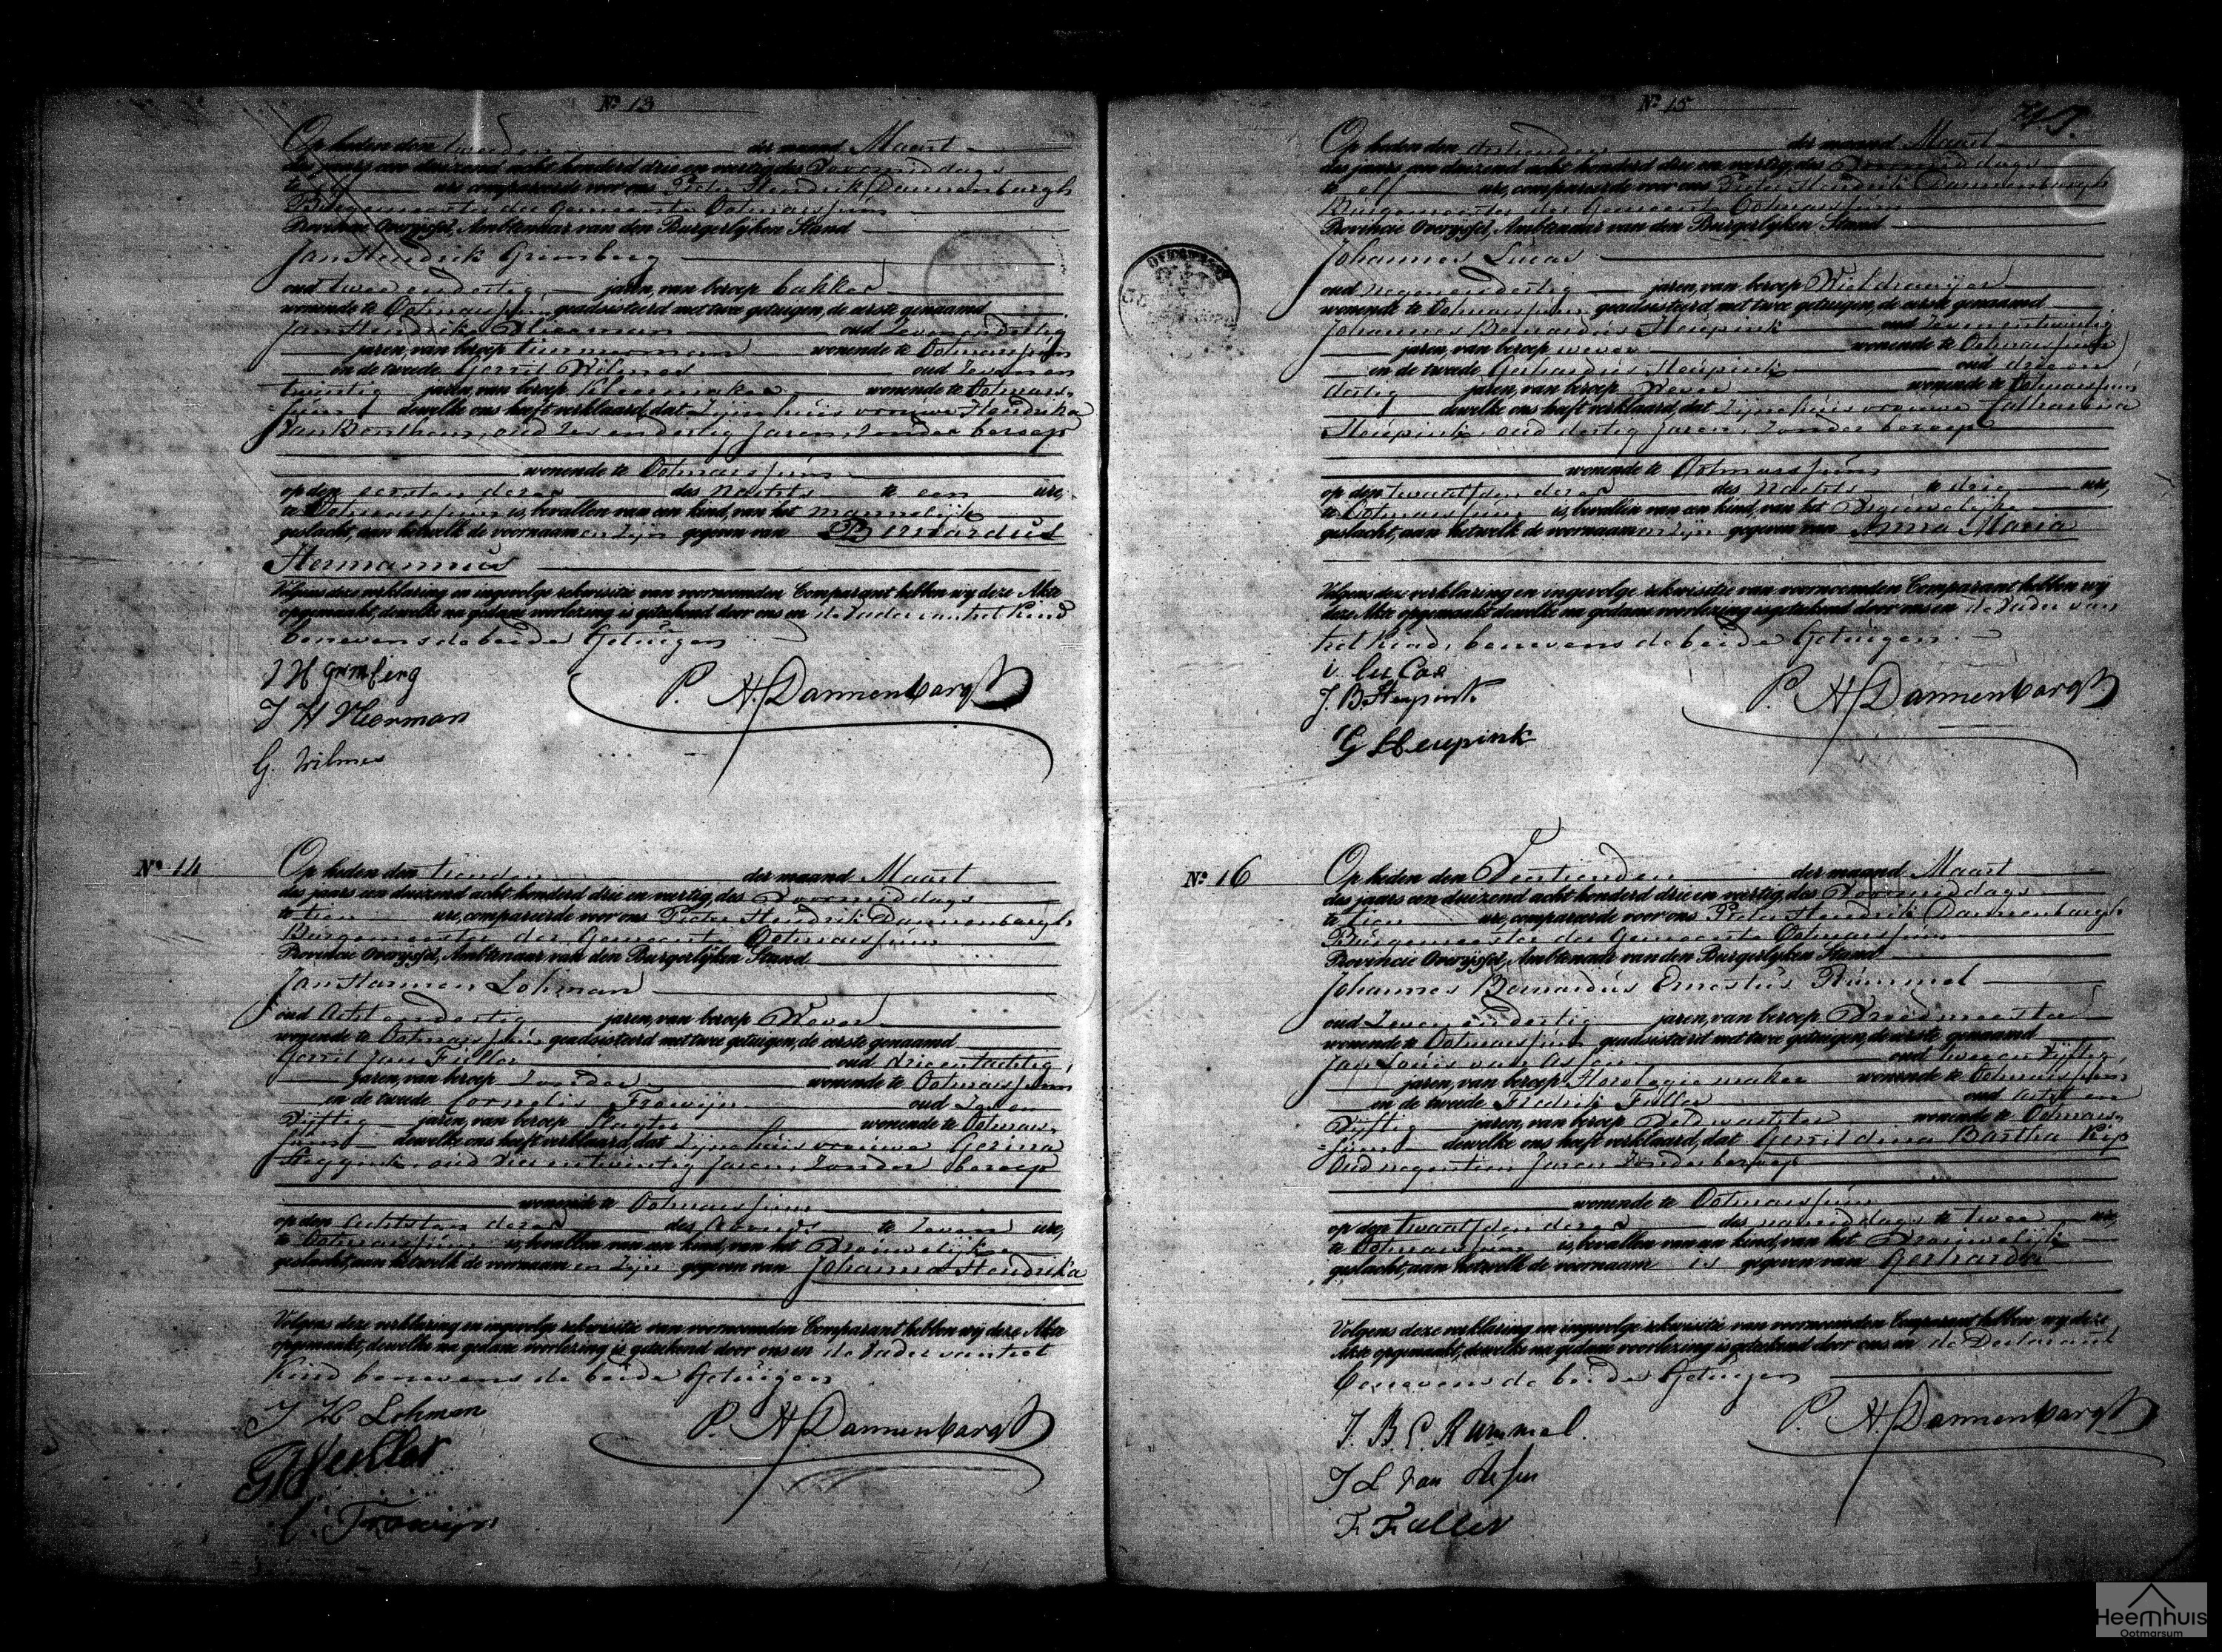 Nº 13
Op heden den tweeden der maand Maart
des jaars een duizend acht honderd drie en veertig, des Voormiddags
te elf ure, compareerde voor ons Pieter Hendrik Dannenbargh
Burgemeester der Gemeente Ootmarssum
Provincie Overijssel, Ambtenaar van den Burgerlijken Stand
Jan Hendrik Gromberg
oud twee en dertig jaren, van beroep bakker
wonende te Ootmarssum geadsisteerd met twee getuigen, de eerste genaamd
Jan Hendrik oud zeven en dertig
jaren, van beroep timmerman wonende te Ootmarssum
en de tweede Gerrit Wilmes oud zeven en
twintig jaren, van beroep kleermaker wonende te Ootmars-
sum dewelke ons heeft verklaard, dat zijne huisvrouwe Hendrika
van Benthem, oud zes en dertig jaren, zonder beroep
wonende te Ootmarssum
op den eersten dezer des Nachts te een ure,
te Ootmarssum is bevallen van een kind, van het mannelijk
geslacht, aan hetwelk de voornaamen zijn gegeven van Bernardus
Hermannus
Volgens deze verklaring en ingevolge rekwisitie van voornoemden Comparant hebben wij deze Akte
opgemaakt, dewelke na gedane voorlezing is getekend door ons en de Vader van het Kind
benevens de beide Getuigen
J H Gromberg
J H
G. Wilmes
P. H. Dannenbargh
Nº 14
Op heden den tienden der maand Maart
des jaars een duizend acht honderd drie en veertig, des Voormiddags
te tien ure, compareerde voor ons Pieter Hendrik Dannenbargh
Burgemeester der Gemeente Ootmarssum
Provincie Overijssel, Ambtenaar van den Burgerlijken Stand
Jan Harmen Lohman
oud Acht en dertig jaren, van beroep Wever
wonende te Ootmarssum geadsisteerd met twee getuigen, de eerste genaamd
Gerrit Jan Fuller oud drie en tachtig
jaren, van beroep zonder wonende te Ootmarssum
en de tweede Cornelis Trowijn oud zes en
Vijftig jaren, van beroep Slagter wonende te Ootmars-
sum dewelke ons heeft verklaard, dat zijne huisvrouwe Gerina
oud vier en twintig jaren, zonder beroep
wonende te Ootmarssum
op den achtsten dezer des Avonds te zeven ure,
te Ootmarssum is bevallen van een kind, van het Vrouwelijke
geslacht, aan hetwelk de voornaamen zijn gegeven van Johanna Hendrika
Volgens deze verklaring en ingevolge rekwisitie van voornoemden Comparant hebben wij deze Akte
opgemaakt, dewelke na gedane voorlezing is getekend door ons en de Vader van het
Kind benevens de beide Getuigen
J H Lohman
C. Trowijn
P. H. Dannenbargh
Nº 15
Op heden den dertienden der maand Maart
des jaars een duizend acht honderd drie en veertig, des Voormiddags
te elf ure, compareerde voor ons Pieter Hendrik Dannenbargh
Burgemeester der Gemeente Ootmarssum
Provincie Overijssel, Ambtenaar van den Burgerlijken Stand
Johannes Lucas
oud negen en dertig jaren, van beroep Wieldraaijer
wonende te Ootmarssum geadsisteerd met twee getuigen, de eerste genaamd
Johannes Bernardus Heupink oud zeven en twintig
jaren, van beroep wever wonende te Ootmarssum
en de tweede Gerhardus Heupink oud drie en
dertig jaren, van beroep Wever wonende te Ootmarssum
dewelke ons heeft verklaard, dat zijne huisvrouwe Catharina
Heupink, oud dertig jaren, zonder beroep
wonende te Ootmarssum
op den twaalfden dezer des Nachts te drie ure,
te Ootmarssum is bevallen van een kind, van het Vrouwelijke
geslacht, aan hetwelk de voornaamen zijn gegeven van Anna Maria
Volgens deze verklaring en ingevolge rekwisitie van voornoemden Comparant hebben wij
deze Akte opgemaakt dewelke na gedane voorlezing is getekend door ons en de Vader van
het Kind, benevens de beide Getuigen
J. B. Heupink
G Heupink
P. H. Dannenbargh
Nº 16
Op heden den Veertienden der maand Maart
des jaars een duizend acht honderd drie en veertig, des Voormiddags
te tien ure, compareerde voor ons Pieter Hendrik Dannenbargh
Burgemeester der Gemeente Ootmarssum
Provincie Overijssel, Ambtenaar van den Burgerlijken Stand
Johannes Bernardus Ernestus Rummel
oud Zeven en dertig jaren, van beroep Vroedmeester
wonende te Ootmarssum geadsisteerd met twee getuigen, de eerste genaamd
Jan Louis van Assen oud twee en Vijftig
jaren, van beroep Horologiemaker wonende te Ootmarssum
en de tweede Fredrik Fuller oud Acht en
Vijftig jaren, van beroep Veldwachter wonende te Ootmars-
sum dewelke ons heeft verklaard, dat Gerritdina Bartha Kip
Oud negentien Jaren Zonder beroep
wonende te Ootmarssum
op den twaalfden dezer des namiddags te twee ure,
te Ootmarssum is bevallen van een kind, van het Vrouwelijk
geslacht, aan hetwelk de voornaam is gegeven van Gerharda
Volgens deze verklaring en ingevolge rekwisitie van voornoemden Comparant hebben wij deze
Akte opgemaakt, dewelke na gedane voorlezing is getekend door ons en de Declarant
benevens de beide Getuigen
J. B. E. Rummel.
J L van Assen
F. Fuller
P. H. Dannenbargh
Heemhuis
Ootmarsum